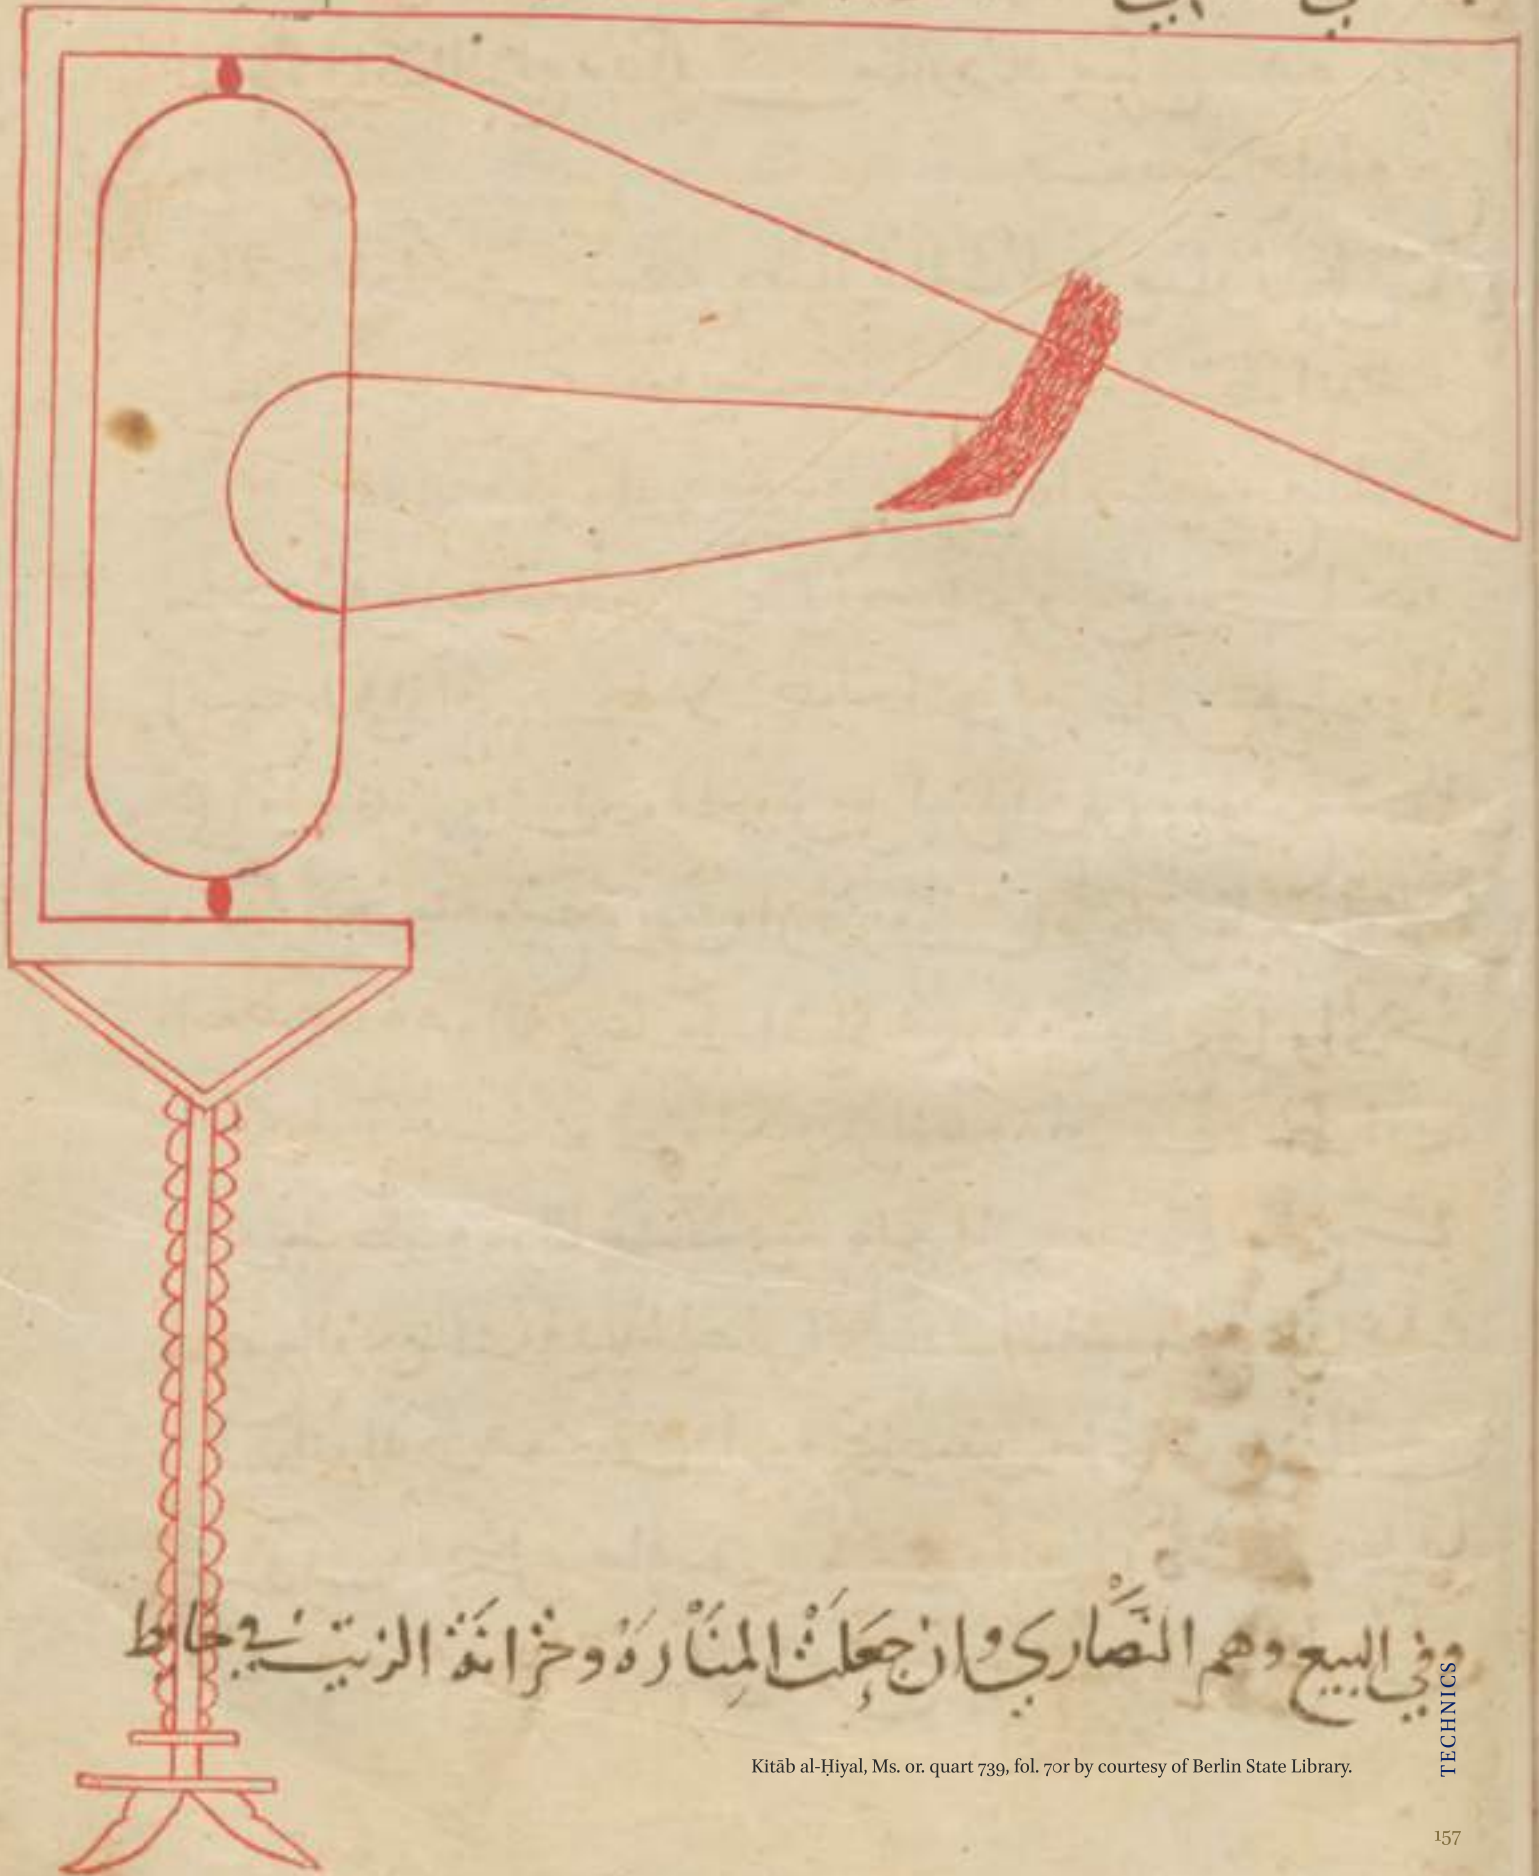 وفي البيع وهم النَّصَارى وان جعَلتْ المِنَارَهْ وخزانَة الزيت في حايط
Kitāb al-Ḥiyal, Ms. or. quart 739, fol. 70r by courtesy of Berlin State Library.
TECHNICS
157